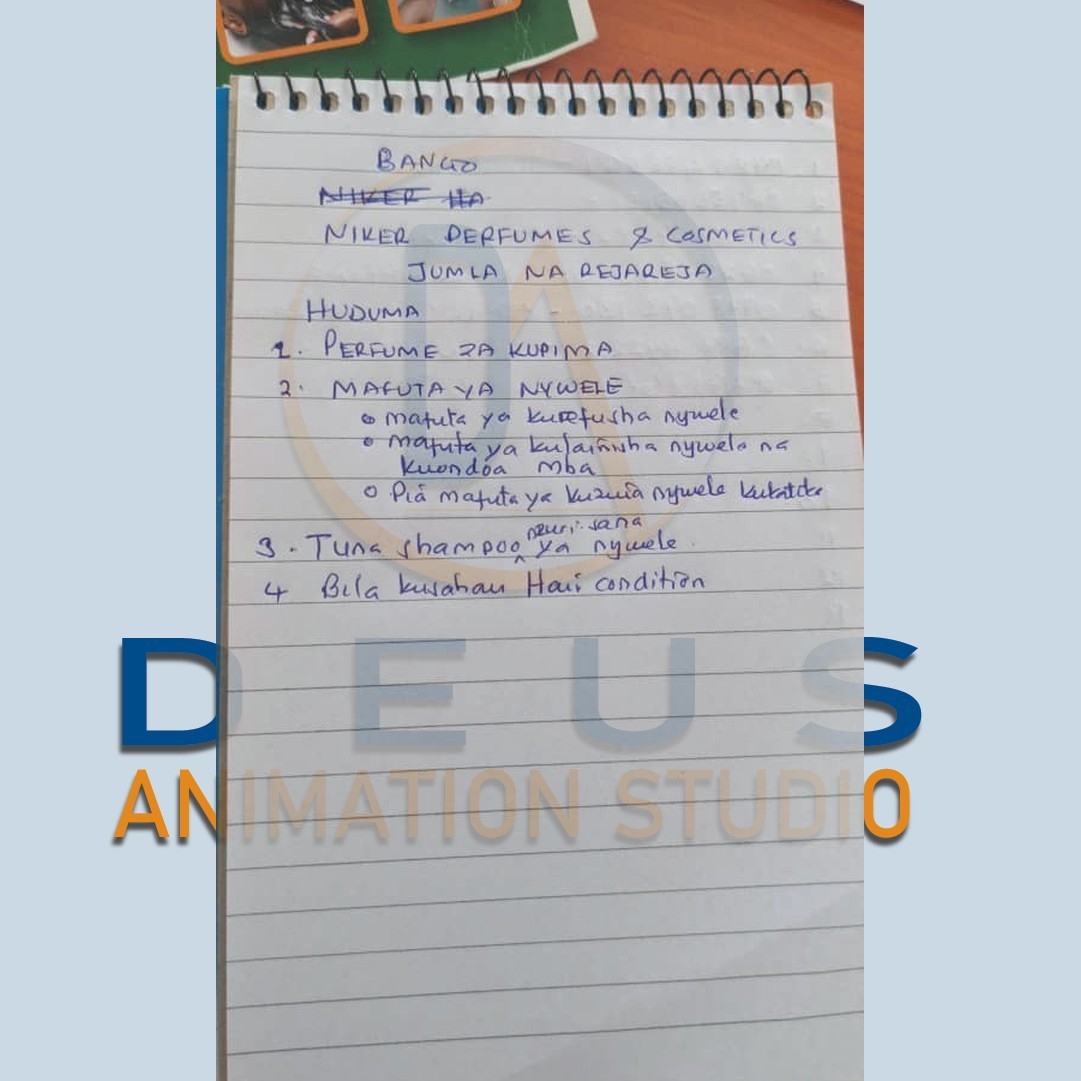 BANGO
NIKER HA
NIKER PERFUMES & COSMETICS
JUMLA NA REJAREJA
HUDUMA
1. PERFUME ZA KUPIMA
2. MAFUTA YA NYWELE
o mafuta ya kurefusha nywele
o mafuta ya kulainisha nywele na
kuondoa mba
o Pia mafuta ya kuzuia nywele kukatika
3. Tuna shampoo nzuri sana ya nywele.
4 Bila kusahau Hair condition
DEUS
ANIMATION STUDIO